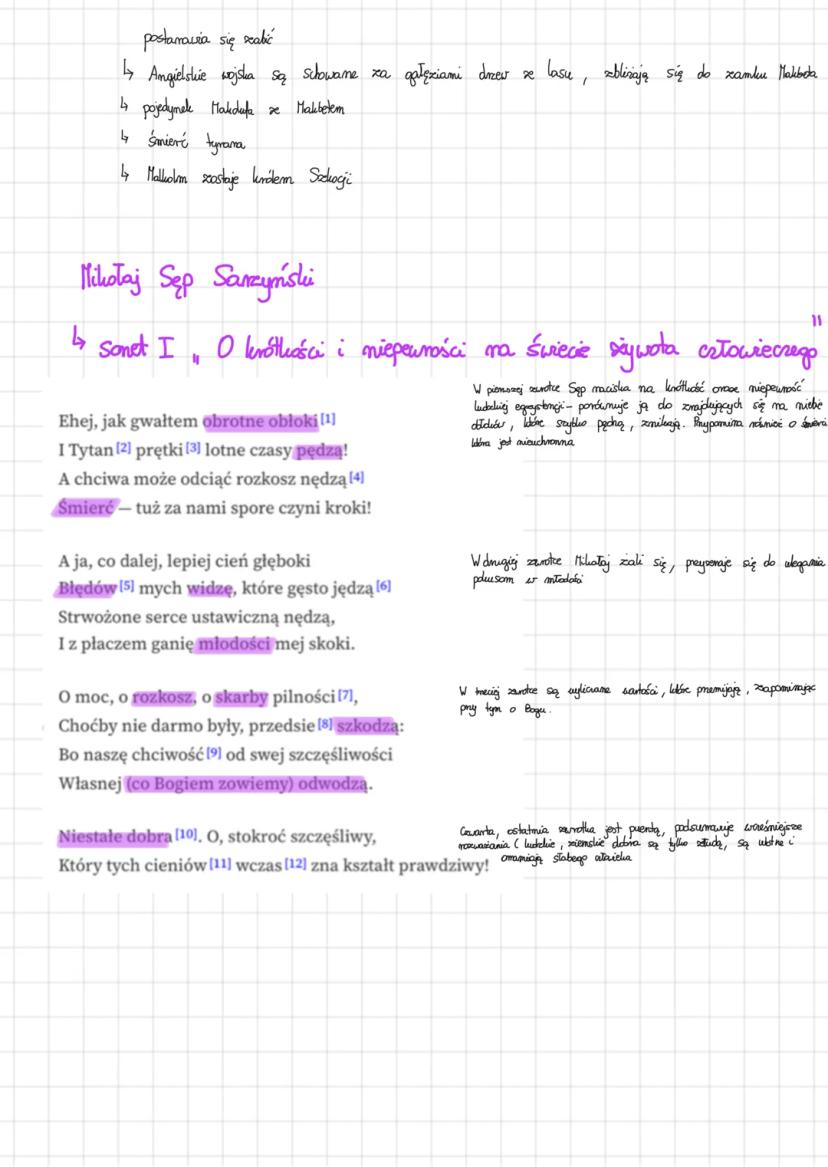 postanawia się zabić
↳ Angielskie wojska są schowane za gałęziami drzew ze lasu, zbliżają się do zamku Makbeta
↳ pojedynek Makdufa ze Makbetem
↳ śmierć tyrana
↳ Malkolm zostaje królem Szkocji
Mikołaj Sęp Sarzyński
↳ sonet I „O krótkości i niepewności na świecie żywota człowieczego"
W pierwszej zwrotce Sęp naciska na krótkość oraz niepewność
ludzkiej egzystencji - porównuje ją do znajdujących się na niebie
obłoków, które szybko pędzą, znikają. Przypomina również o śmierci
która jest nieuchronna
Ehej, jak gwałtem obrotne obłoki[1]
I Tytan[2] prętki[3] lotne czasy pędzą!
A chciwa może odciąć rozkosz nędzą[4]
Śmierć — tuż za nami spore czyni kroki!
W drugiej zwrotce Mikołaj żali się, przyznaje się do ulegania
pokusom w młodości
A ja, co dalej, lepiej cień głęboki
Błędów[5] mych widzę, które gęsto jędzą[6]
Strwożone serce ustawiczną nędzą,
I z płaczem ganię młodości mej skoki.
W trzeciej zwrotce są wyliczane wartości, które przemijają, zapominając
przy tym o Bogu.
O moc, o rozkosz, o skarby pilności[7],
Choćby nie darmo były, przedsie[8] szkodzą:
Bo naszę chciwość[9] od swej szczęśliwości
Własnej (co Bogiem zowiemy) odwodzą.
Czwarta, ostatnia zwrotka jest puentą, podsumowuje wcześniejsze
rozważania (ludzkie, ziemskie dobra są tylko złudą, są ulotne i
omamiają słabego człowieka
Niestałe dobra[10]. O, stokroć szczęśliwy,
Który tych cieniów[11] wczas[12] zna kształt prawdziwy!